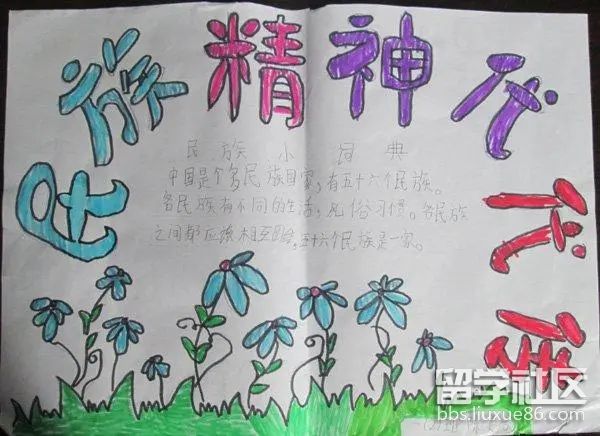 民族精神代代传
民族小词典
中国是个多民族国家,有五十六个民族。
各民族有不同的生活,风俗习惯。各民族
之间都应该相互团结,五十六个民族是一家。
留学社区
bbs.liuxue86.com